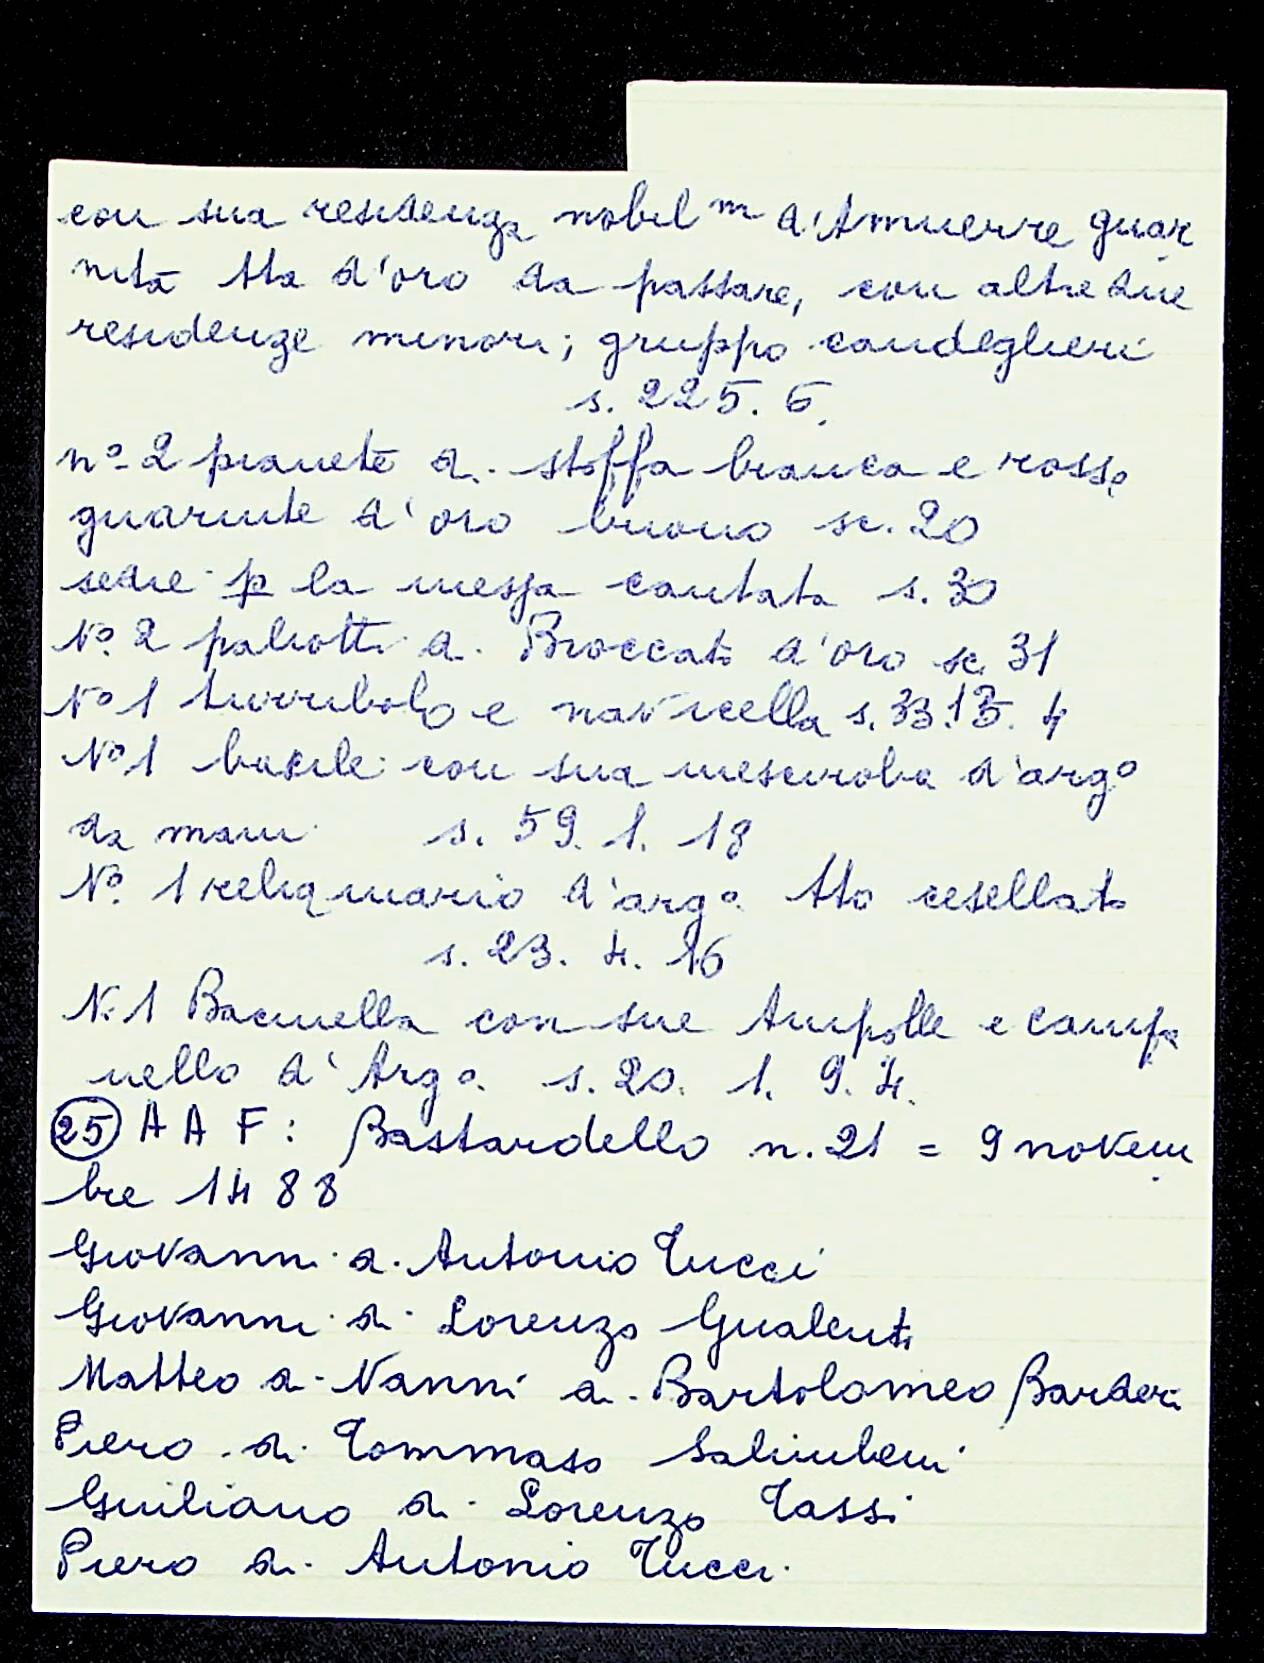 con sua residenza nobil m d'Amuerre guar
nita tta d'oro da passare, con altre due
residenze minori; gruppo candeglieri
s. 225. 6.
n° 2 pianete di stoffa bianca e rossa
guarnite d'oro buono sc. 20
sedie p la messa cantata s. 30
N° 2 paliotti di Broccato d'oro sc. 31
N° 1 turribolo e navicella s. 33.13. 4
N° 1 bacile con sua mesciroba d'arg°
da mani s. 59. 1. 18
N° 1 reliquiario d'arg° tto cesellato
s. 23. 4. 16
N. 1 Bacinella con sue Ampolle e campa
nello d'Arg° s. 20. 1. 9. 4.
25 A A F: Bastardello n. 21 = 9 novem
bre 1488
Giovanni di Antonio Tucci
Giovanni di Lorenzo Gualenti
Matteo di Nanni di Bartolomeo Barderi
Piero di Tommaso Salimbeni
Giuliano di Lorenzo Tassi
Piero di Antonio Tucci.